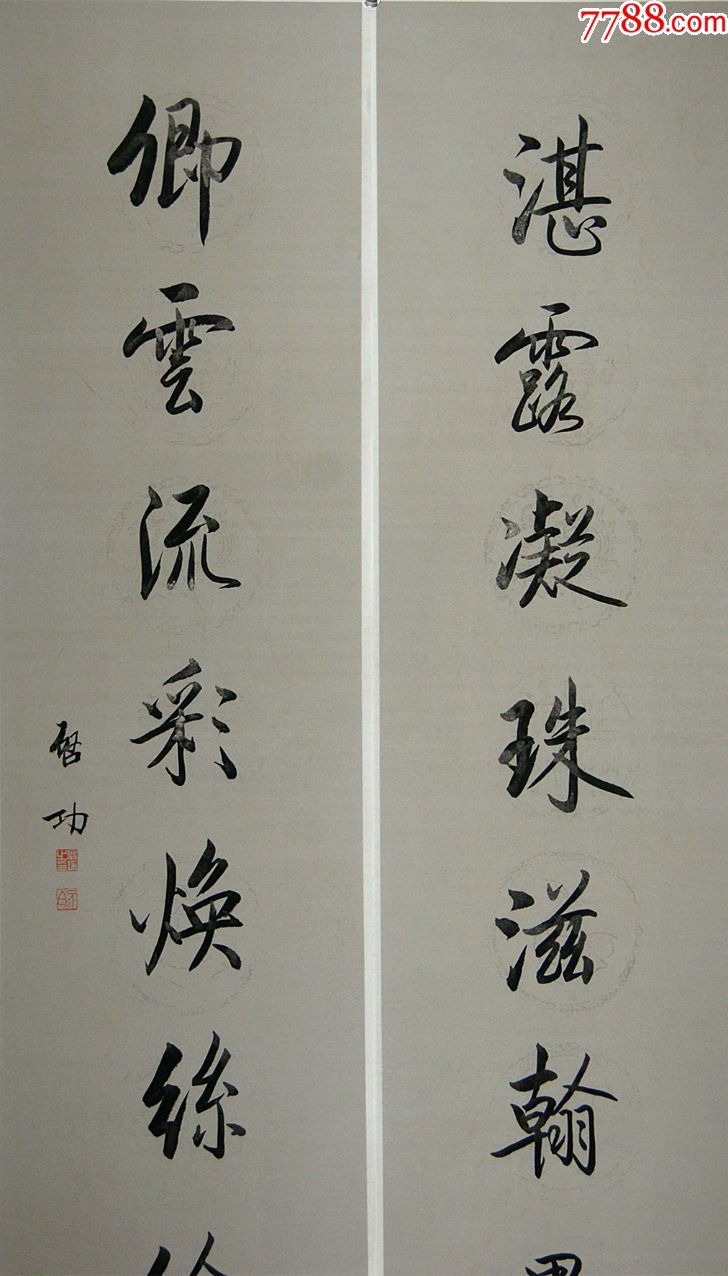 7788.com
湛露凝珠滋翰
卿雲流彩煥絲
启功